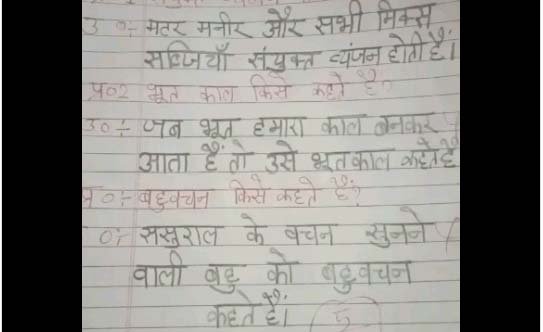 उ०:- मटर मनीर और सभी मिक्स
सब्जियाँ संयुक्त व्यंजन होती हैं।
प्र०२ भूत काल किसे कहते है?
उ०:- जब भूत हमारा काल बनकर
आता है तो उसे भूतकाल कहतेहै
प्र०:- बहुवचन किसे कहते हैं?
०:- ससुराल के वचन सुनने
वाली बहु को बहुवचन
कहते हैं।